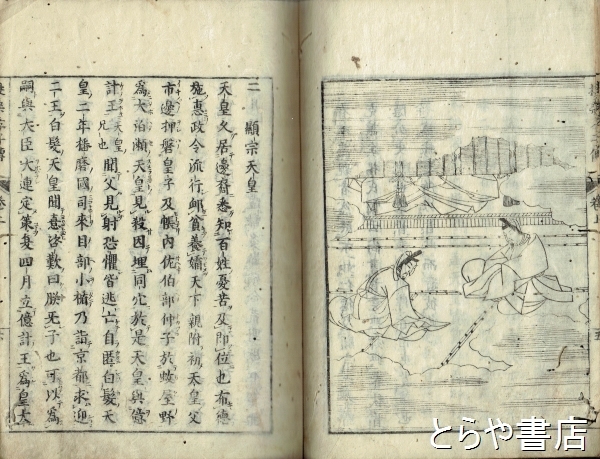 二 顯宗天皇
天皇久居邊裔悉知百姓憂苦及即位也布德
施惠政令流行䘏貧養孀天下親附初天皇父
市邊押磐皇子及帳內佐伯部仲子於蚊屋野
為大泊瀨天皇見殺因埋同穴於是天皇與億
計王天皇兄也聞父見射恐懼皆逃亡自匿白髮天
皇二年播磨國司來目部小楯乃詣京都求迎
二王白髮天皇聞憙咨歎曰朕无子也可以為
嗣與大臣大連定策 四月立億計王為皇太
とらや書店